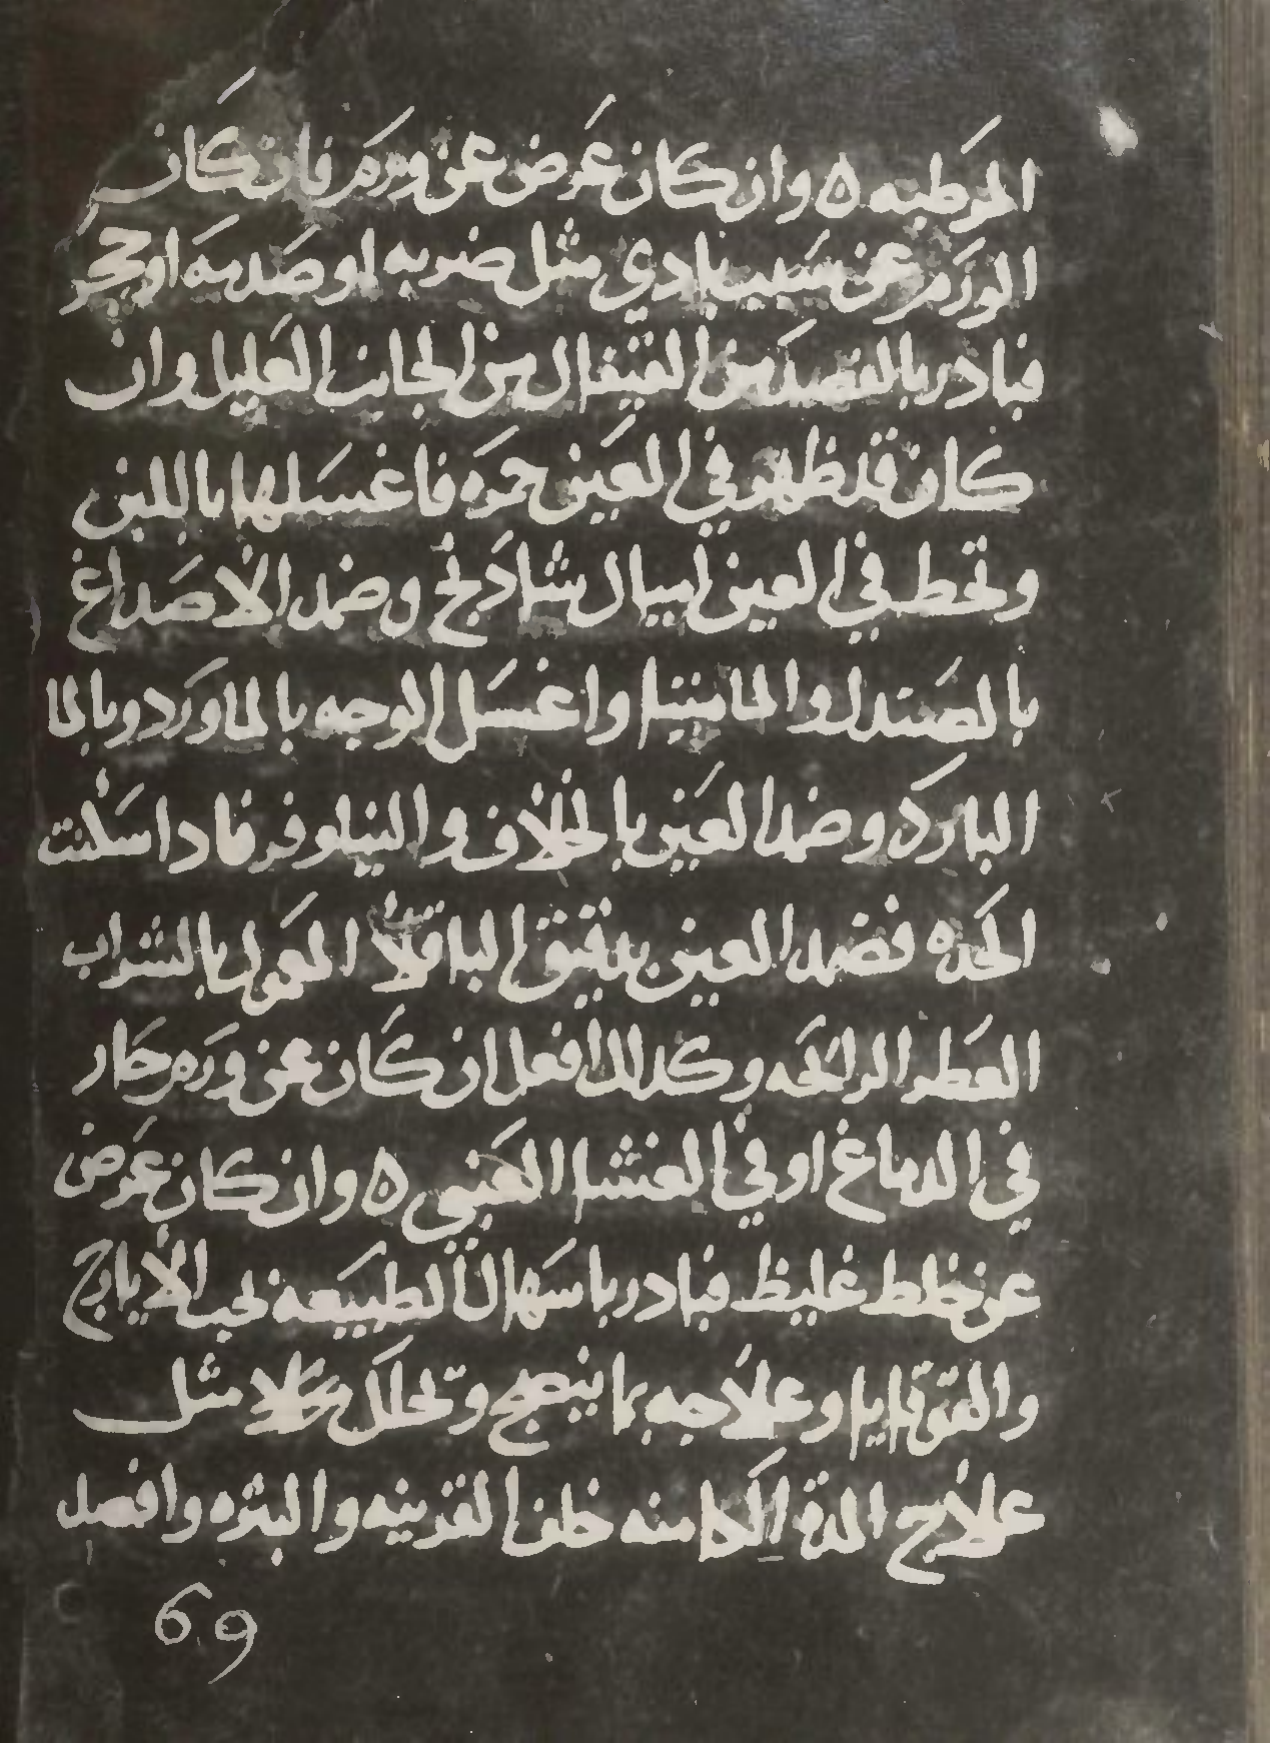 المرطبه ٥ وان كان عرض عن ورم فان كان
الورم عن سبب بادي مثل ضربه او صدمه او حجر
فبادر بالفصد من القيفال من الجانب العليل وان
كان قد ظهر في العين حمره فاغسلها باللبن
وتحط في العين اميال شاذنج وضمد الاصداغ
بالصندل والماميثا واغسل الوجه بالماورد وبالما
البارد وضمد العين بالخلاف والنيلوفر فاذا سكنت
الحده فضمد العين بدقيق الباقلا المعمول بالشراب
العطر الرائحه وكدلك افعل ان كان عن ورم حار
في الدماغ او في الغشا العنبي ٥ وان كان عرض
عن خلط غليظ فبادر باسهال الطبيعه بحب الايارج
والقوقايا وعلاجه بما ينضج وتحلل كلا مثل
علاج المدة الكامنه خلف القرنيه والبثره وافصد
69